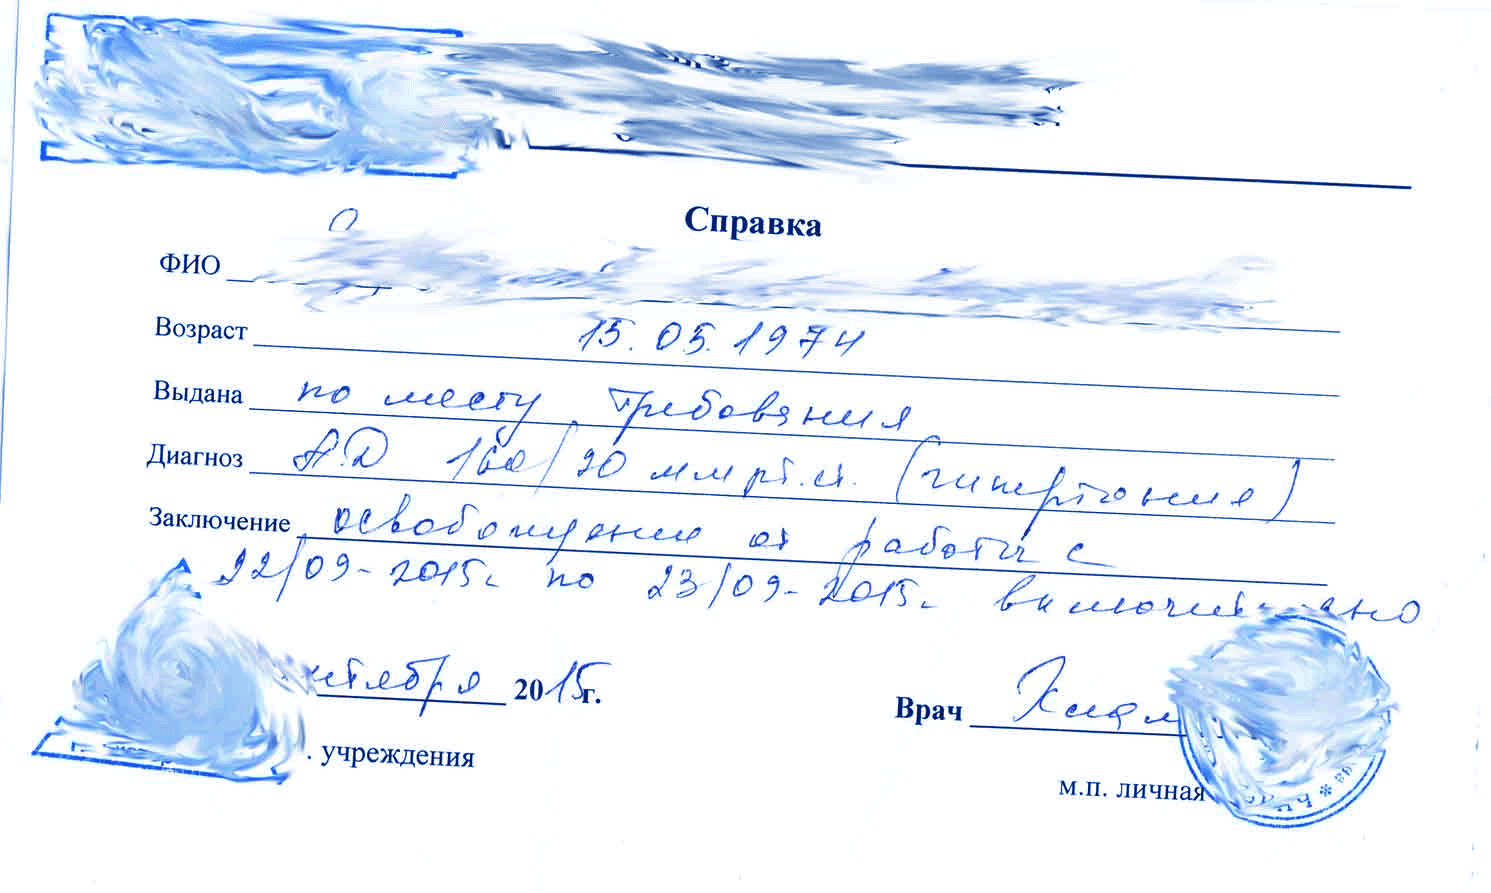 Справка
ФИО
Возраст 15.05.1974
Выдана по месту требования
Диагноз АД 160/90 мм рт.ст. (гипертония)
Заключение освобождение от работы с
22/09-2015г. по 23/09-2015г. включительно
нтября 2015г.
Врач
. учреждения
м.п. личная